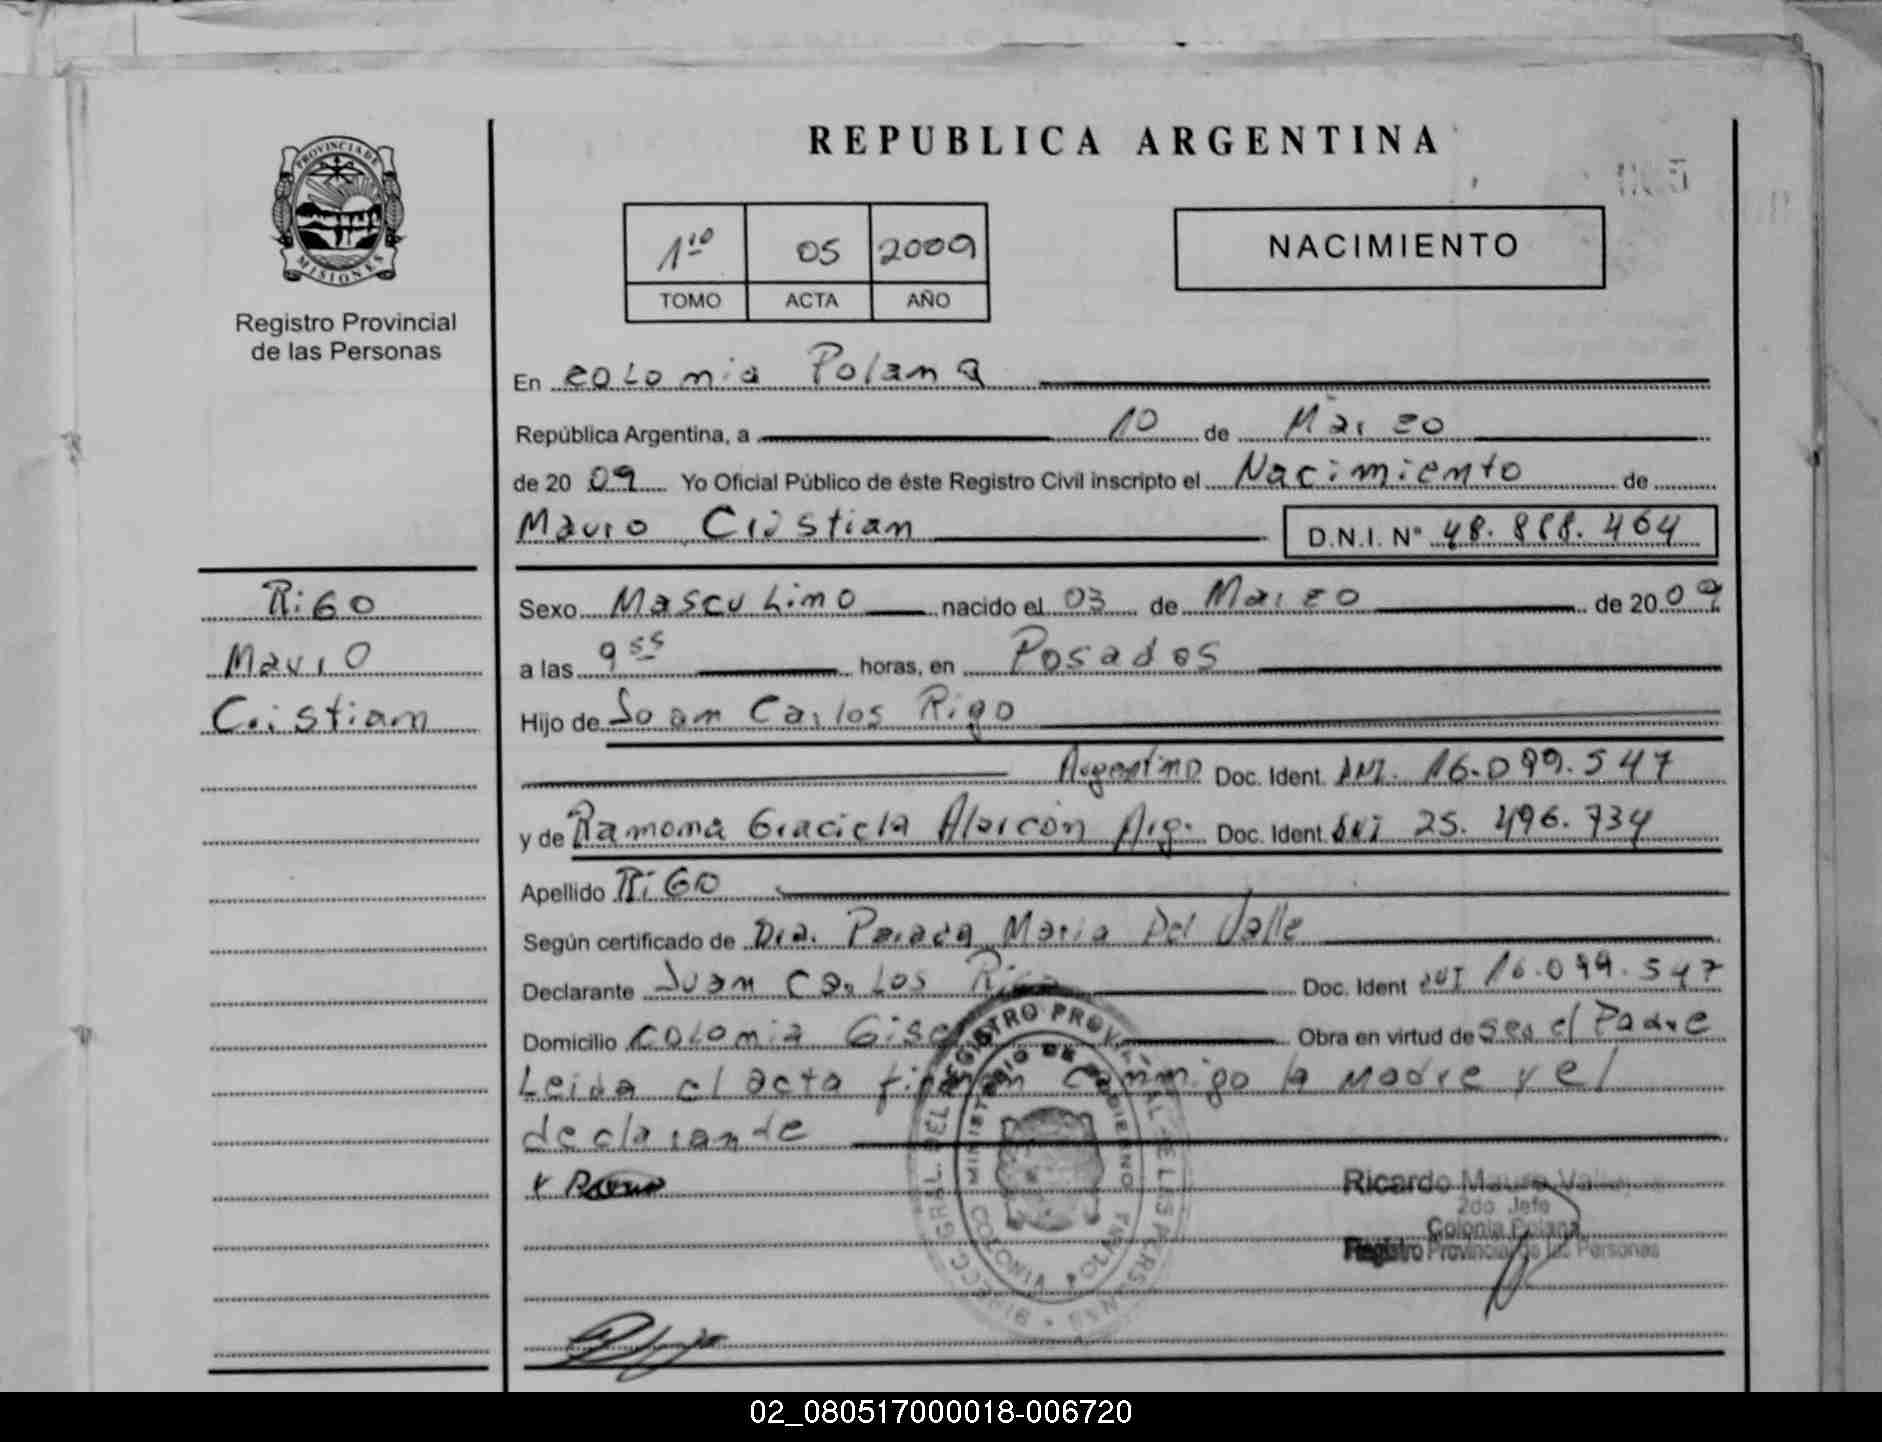 REPUBLICA ARGENTINA
PROVINCIA DE
MISIONES
Registro Provincial
de las Personas
1ro 05 2009
TOMO ACTA AÑO
NACIMIENTO
En Colonia Polana
República Argentina, a 10 de Marzo
de 2009 Yo Oficial Público de éste Registro Civil inscripto el Nacimiento de
Mauro Cristian D.N.I. N° 48.888.464
Rigo
Mauro
Cristian
Sexo Masculino nacido el 03 de Marzo de 2009
a las 9 55 horas, en Posadas
Hijo de Juan Carlos Rigo
Argentino Doc. Ident. DNI. 16.099.547
y de Ramona Graciela Alarcón Arg. Doc. Ident. DNI 25.496.734
Apellido RiGo
Según certificado de Dra. Parada Maria Del Valle
Declarante Juan Carlos Rigo Doc. Ident DNI 16.099.547
Domicilio Colonia Obra en virtud de ser el Padre
Leida el acta firman conmigo la Madre y el
declarante
REGISTRO PROVINCIAL DE LAS PERSONAS
MINISTERIO DE GOBIERNO
COLONIA POLANA
Ricardo Mauro
2do Jefe
Colonia Polana
Registro Provincial de las Personas
02_080517000018-006720